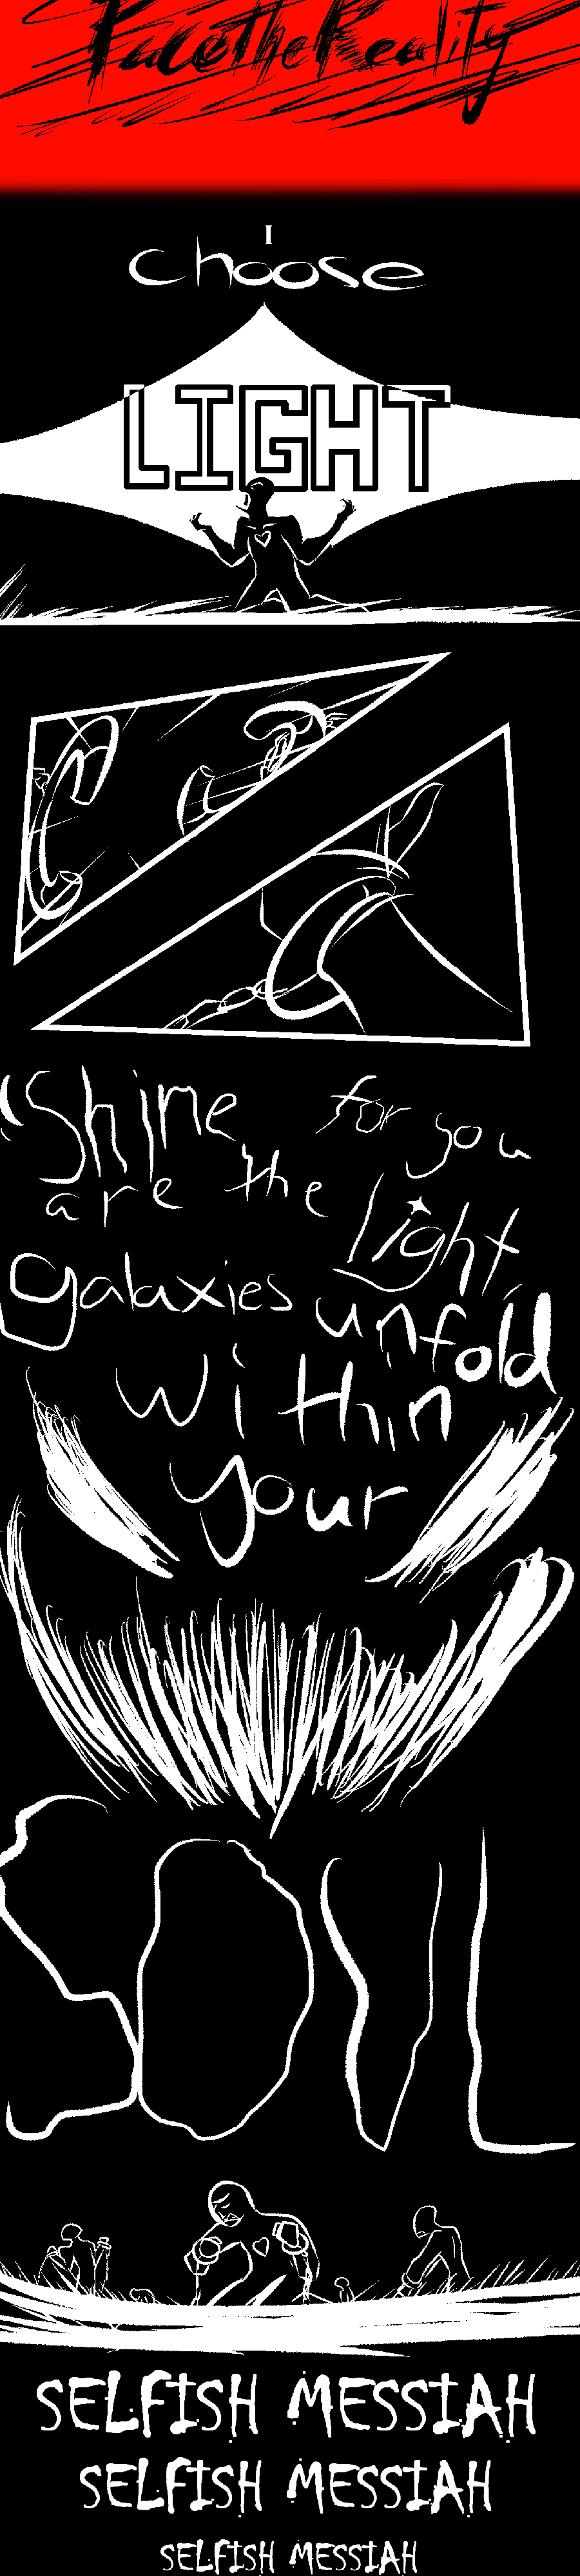 Face The Reality
I
choose
LIGHT
Shine for you
are the light
galaxies unfold
within
your
SOUL
SELFISH MESSIAH
SELFISH MESSIAH
SELFISH MESSIAH